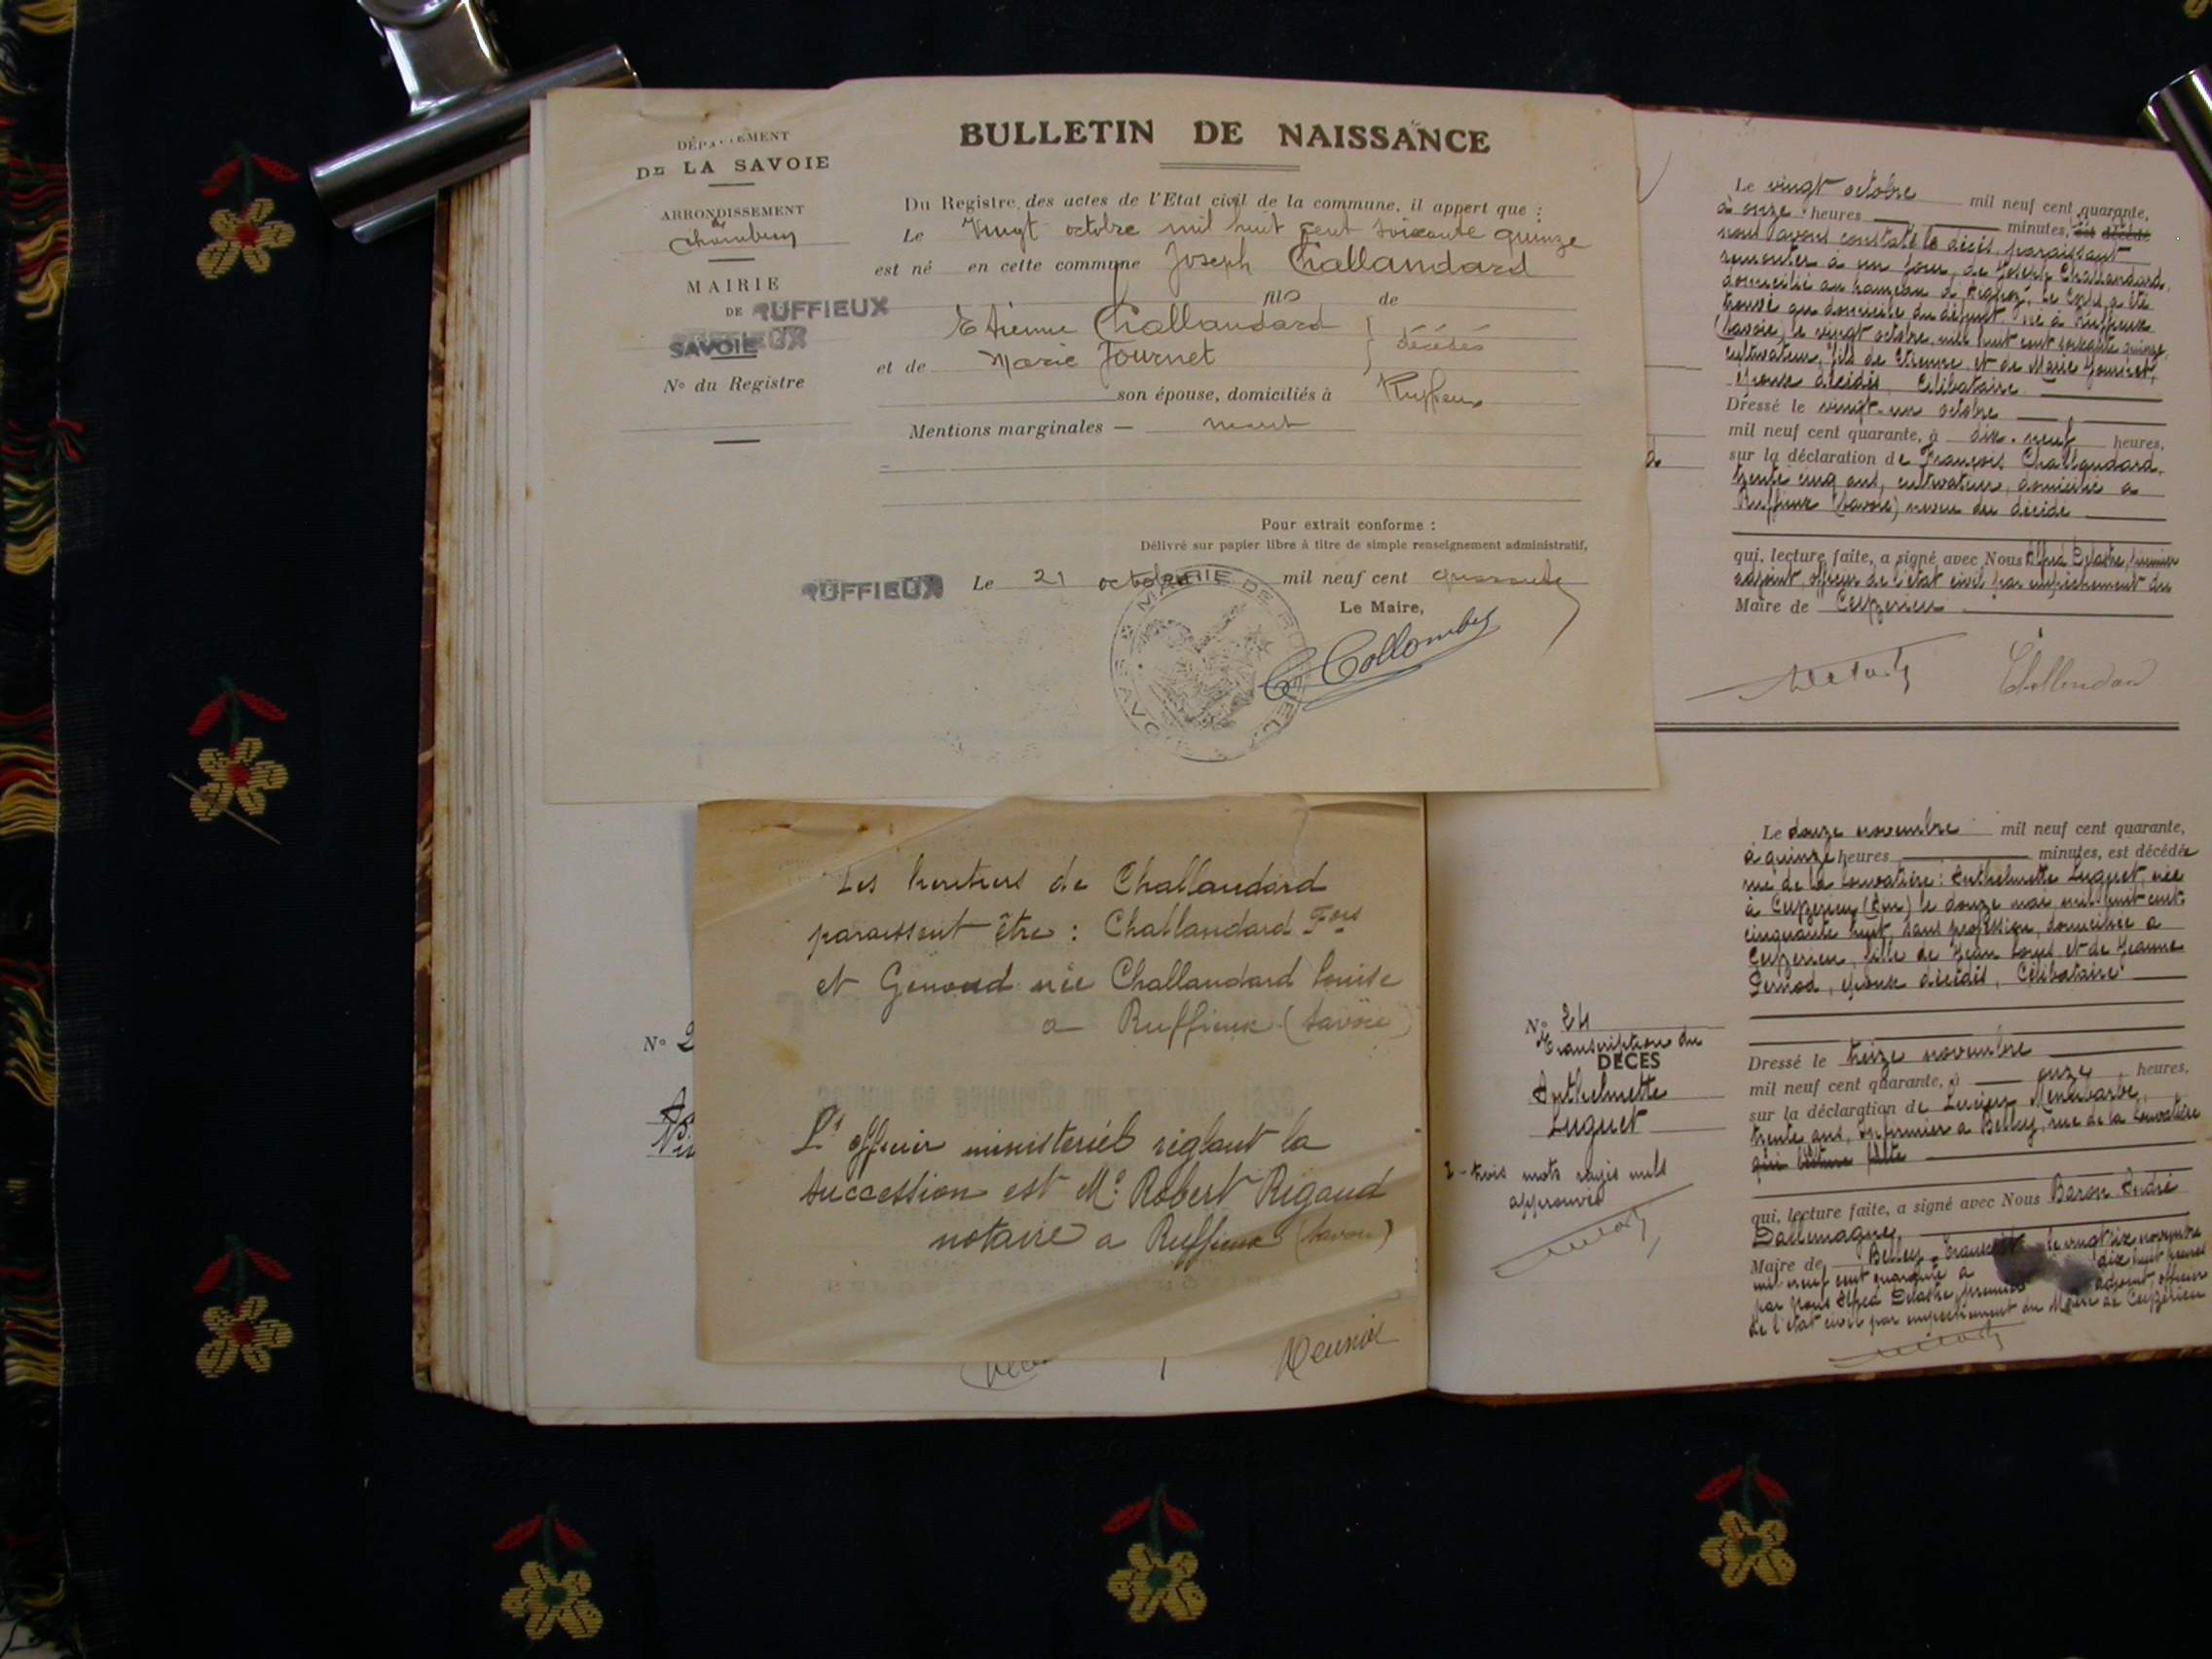 BULLETIN DE NAISSANCE
DE LA SAVOIE
ARRONDISSEMENT
de
Chambéry
MAIRIE
DE RUFFIEUX
SAVOIE
N° du Registre
Du Registre des actes de l'Etat civil de la commune, il appert que :
Le Vingt octobre mil huit cent soixante quinze
est né en cette commune Joseph Challandard
fils de
Etienne Challandard
et de Marie Journet } décédés
son épouse, domiciliés à Ruffieux
Mentions marginales —
Pour extrait conforme :
Délivré sur papier libre à titre de simple renseignement administratif,
RUFFIEUX Le 21 octobre mil neuf cent quarante
Le Maire,
C Collomb
MAIRIE DE RUFFIEUX
SAVOIE
Les heritiers de Challandard
paraissent être : Challandard Fois
et Genoud née Challandard Louise
a Ruffieux (Savoie)
L'officier ministeriel réglant la
succession est Me Robert Rigaud
notaire a Ruffieux (Savoie)
Meunier
N° 2
Le vingt octobre mil neuf cent quarante,
à onze heures minutes, est décédé
nous avons constaté le décès, paraissant
remonter à un jour, de Joseph Challandard,
domicilié au hameau d' le corps a été
trouvé au domicile du défunt né à Ruffieux
(Savoie) le vingt octobre mil huit cent soixante quinze,
cultivateur, fils de Etienne et de Marie Journet,
époux décédés, Célibataire
Dressé le vingt-un octobre
mil neuf cent quarante, à dix-neuf heures,
sur la déclaration de François Challandard,
trente cinq ans, cultivateur, domicilié a
Ruffieux (Savoie) neveu du décédé
qui, lecture faite, a signé avec Nous Alfred Delastre, premier
adjoint officier de l'état civil par empêchement du
Maire de Ceyzerieu
Challandard
N° 24
Transcription du
DÉCÈS
Anthelmette
Luguet
trois mots rayés nuls
approuvés
Le douze novembre mil neuf cent quarante,
à quinze heures minutes, est décédée
rue de la Louvatière : Anthelmette Luguet, née
à Ceyzerieu (Ain) le douze mai mil huit cent
cinquante huit, sans profession, domiciliée a
Ceyzerieu, fille de Jean Louis et de Jeanne
Pernod, époux décédés, Célibataire
Dressé le treize novembre
mil neuf cent quarante, à onze heures,
sur la déclaration de Lucien
trente ans, infirmier a Belley, rue de la Louvatière
qui lecture faite
qui, lecture faite, a signé avec Nous Baron André
Dallemagne
Maire de Belley. le vingt six novembre
mil neuf cent quarante a dix huit heures
par Nous Alfred Delastre, premier adjoint, officier
de l'état civil par empêchement du Maire de Ceyzerieu